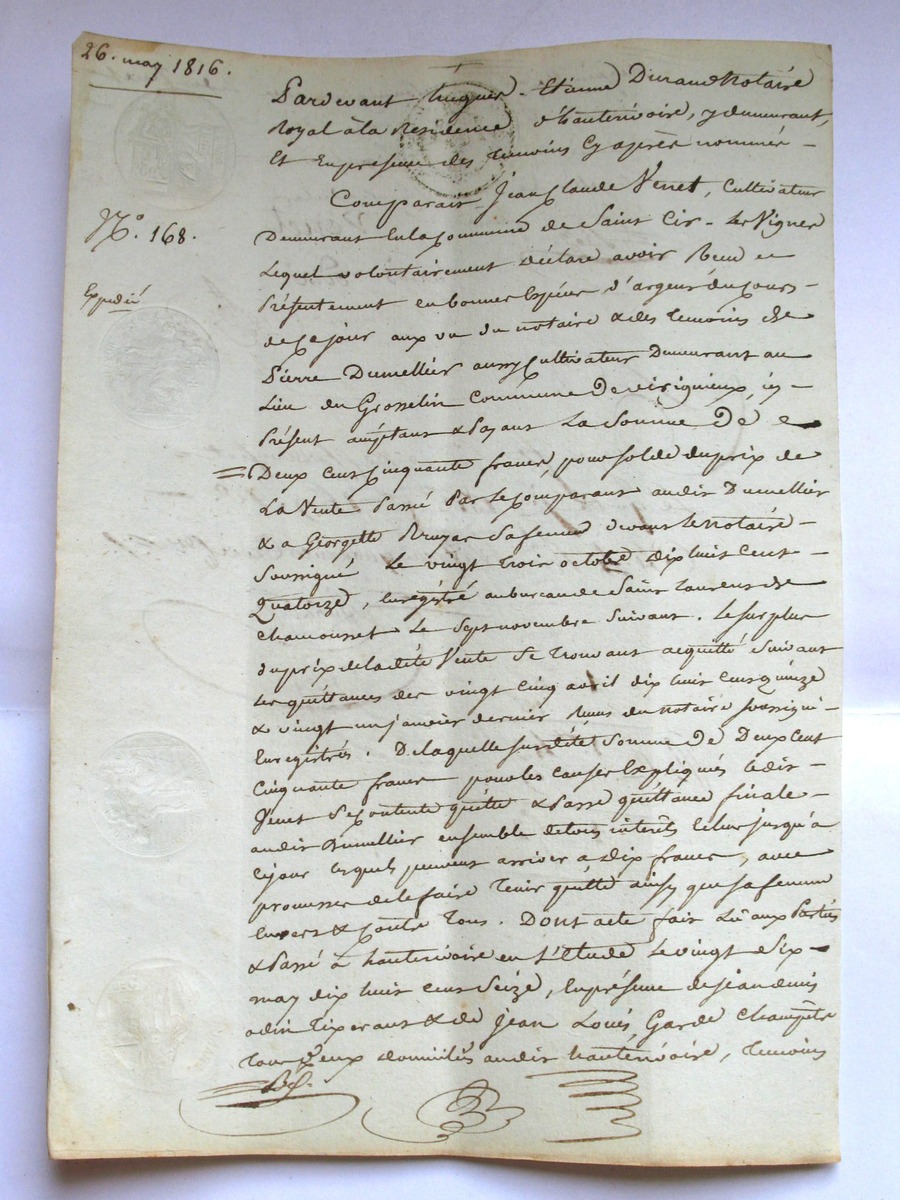 26. may 1816.
Pardevant hugues - Etienne Durand Notaire
Royal à la Residence d'hauterivoire, y demeurant,
Et En presence des temoins cy après nommés -
Comparait Jean Claude Venet, Cultivateur
N.° 168.
Demeurant En la Commune de Saint Cir - les Vignes
Expedié
Lequel volontairement déclare avoir Recu
Présentement en bonnes Espéces d'argent du Cours -
de Ce jour aux vu du notaire & des temoins de
Pierre Dumellier aussy Cultivateur Demeurant au
Lieu du Grosselin Commune De virignieux, icy -
Présent acceptant & Payant La Somme De
Deux Cent Cinquante francs, pour solde du prix de
La Vente Passé Par le Comparant audit Dumellier
& a Georgette Bruyas Sa femme devant le notaire -
Soussigné Le vingt trois octobre dix huit Cent -
Quatorze, Enregistré au bureau de Saint Laurent de
Chamousset Le Sept novembre Suivant. Le surplus
du prix de la dite Vente Se trouvant acquitté Suivant
Les quittances des vingt cinq avril dix huit Cent quinze
& vingt un janvier dernier Recues du notaire soussigné -
Enregistrés. De laquelle susdité Somme De Deux Cent
Cinquante francs pour les causes Expliqués ledit -
Venet Se Contente quitte & Passe quittance finale -
audit Dumellier ensemble de tous interêts Echus jusqu'a
ce jour lesquels peuvent arriver a dix francs, avec
promesse de le faire tenir quitte ainsy que sa femme
Envers & Contre tous. Dont acte fait Lû aux Parties
& Passé à hauterivoire en l'Etude Le vingt Six -
may dix huit Cent Seize, En présence de jean denis
odin Tixerant & de Jean Loués, Garde Champêtre
tous deux domiciliés audit hauterivoire, temoins